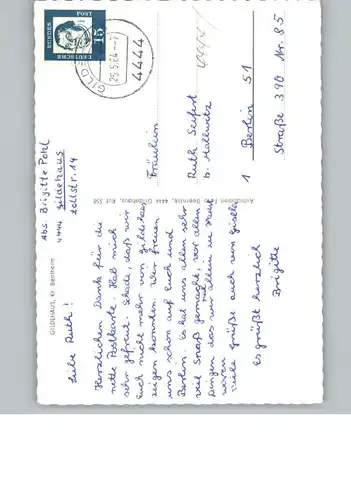 Abs. Brigitte Pohl
4444 Gildehaus
Zollstr. 14
GILDEHAUS, Kr. Bentheim
Liebe Ruth!
Herzlichen Dank für die
nette Postkarte. Hab mich
sehr gefreut. Schade, daß wir
Euch nicht mehr von Gildehaus
zeigen konnten. Wir freuen
uns schon auf Euch und
Berlin. Es hat uns allen sehr
viel Spaß gemacht, vor allen
Dingen das wir allein zu Haus
waren. Viele Grüße auch von Gisela
Es grüßt herzlich
Brigitte
4444 Gildehaus, Ruf 558
DEUTSCHE
BUNDESPOST
15
GILDE
25.5.64
4444
Fräulein
Ruth Seifert
b. Hallwitz
1 Berlin 51
Straße 390 Nr. 85